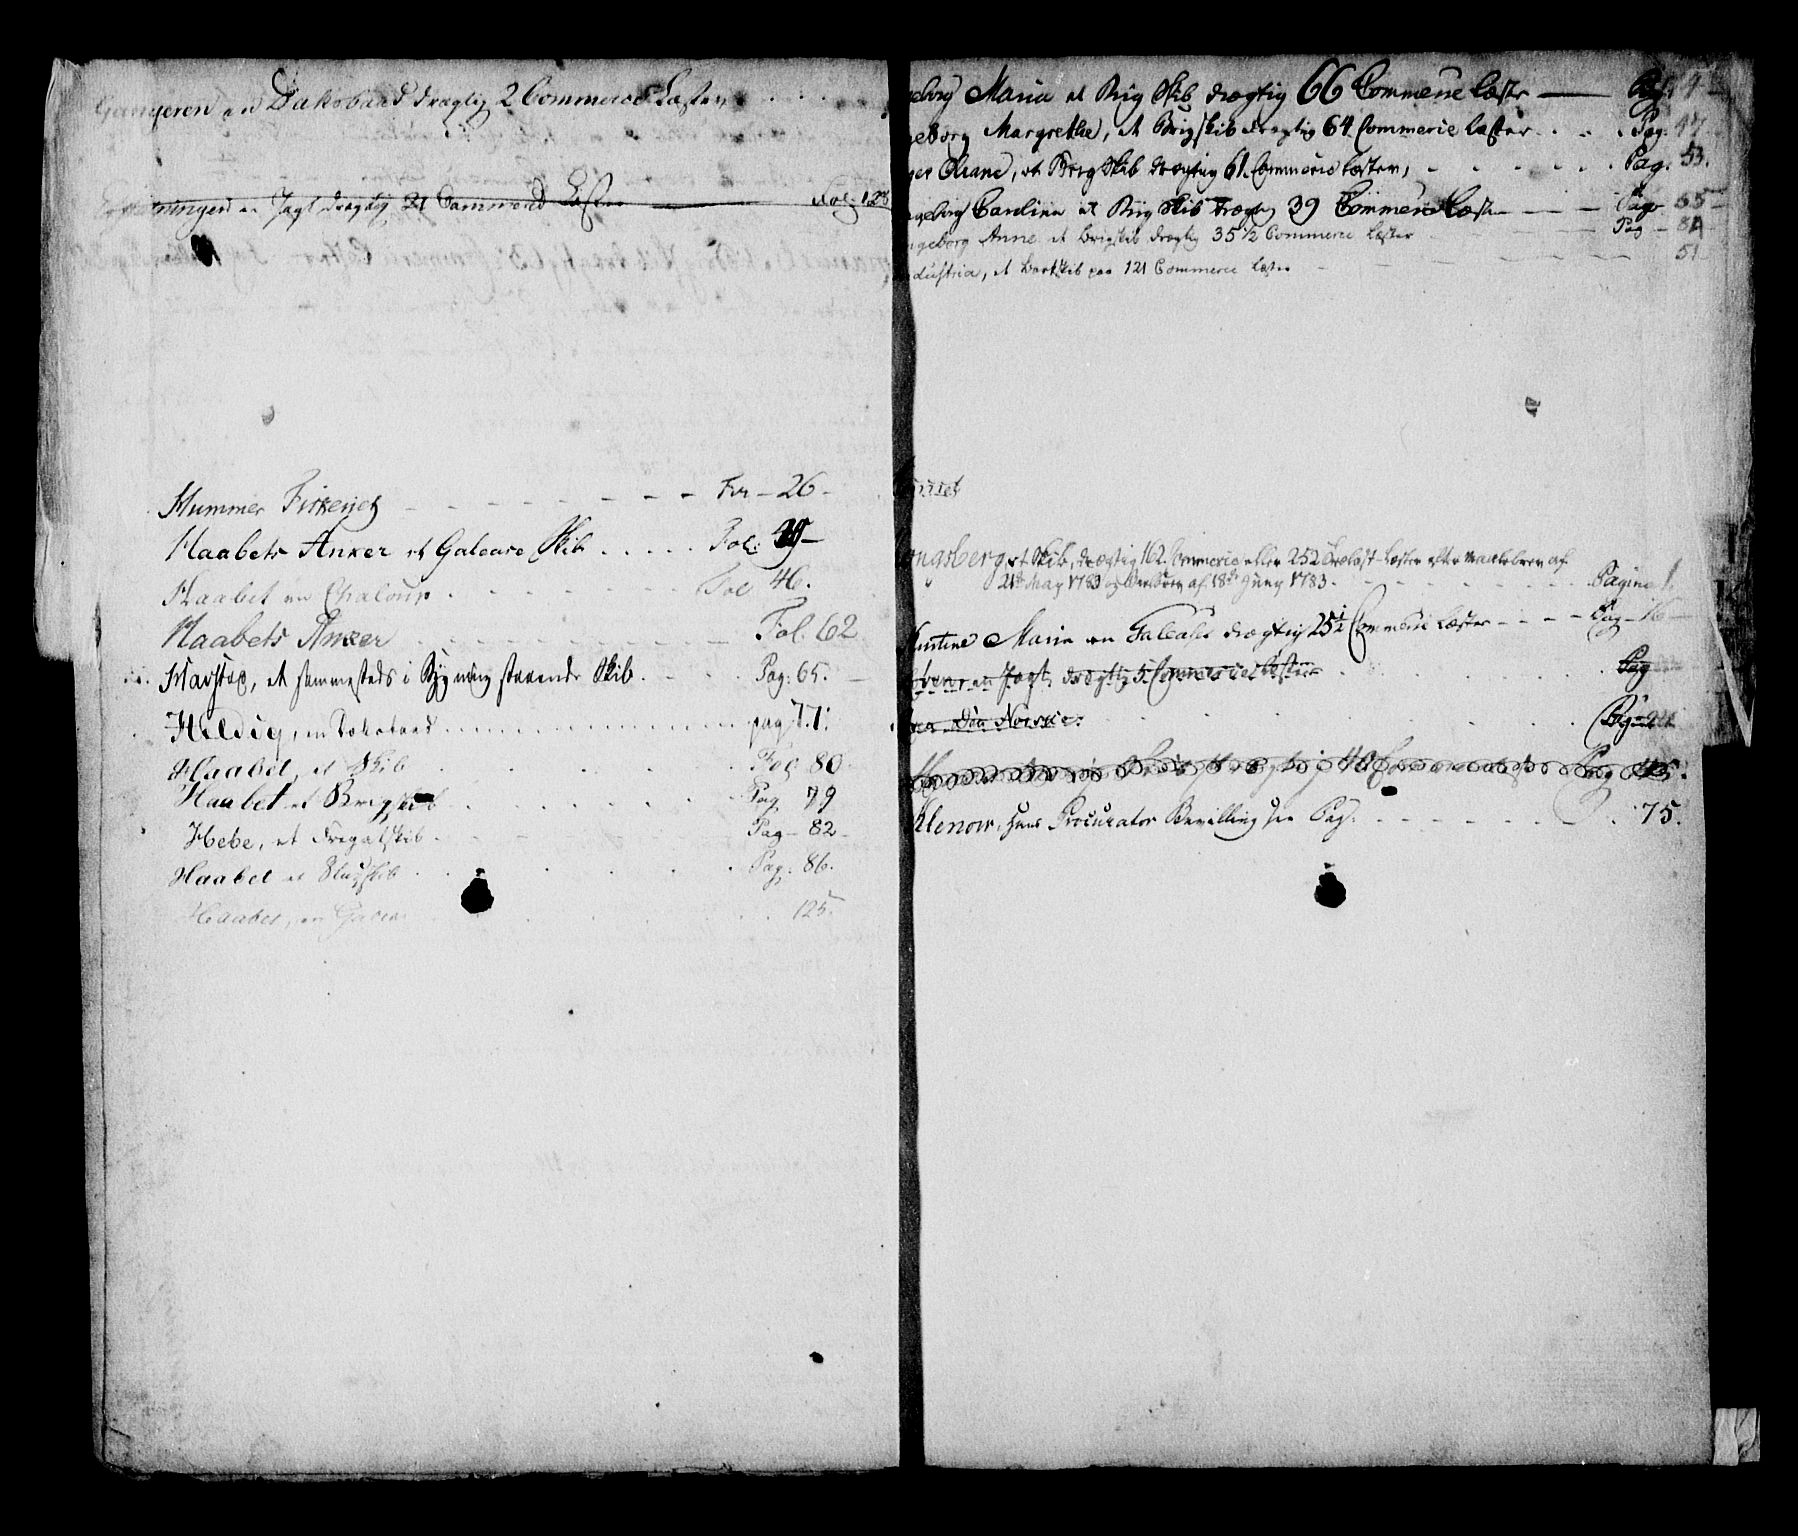 Gangeren en Dæksbaad drægtig 2 Commerce Læster
en Jagt drægtig 21 Commerce Læster Fol: 128
Hummer Fiskeriet Fol - 26 -
Haabets Anker et Galease Skib Fol:
Haabet en Chaloup Fol 46.
Haabets Anker Fol. 62
Havstox, et sammesteds i Bygning staaende Skib Pag: 65.
Heldig, en Dæksbaad pag 77:
Haabet, et Skib Fol 80
Haabet et Brigskib Pag 79
Hebe, et Fregatskib Pag - 82 -
Haabet et Slupskib Pag: 86.
Haabet, en Galeas 125.
geborg Maria et Brig Skib drægtig 66 Commerce Læster Pag: 9
geborg Margrethe, et Brigskib drægtig 64 Commerce Læster Pag. 47
ger Eliane, et Brig Skib drægtig 61. Commerce Læster, Pag. 53.
ngeborg Carolina et Brig Skib drægtig 39 Commerce Læster Pag 65
ngeborg Anne et Brigskib drægtig 35 1/2 Commerce Læster Pag - 81
dustria, et Barkskib paa 121 Commerce Læster 51
ongsberg, et Skib, drægtig 162 Commerce eller 252 Træлаst-Læster efter Maalebrev af
21de May 1783 og af 18de Juny 1783. Pagina 1.
irstine Maria en Galease drægtig 25 1/2 Commerce Læster Pag - 16
en Jagt, drægtig 5 Commerce Læster Pag
den Norske. Pag
Pag 45.
Klenow, hans Procurator Bevilling see Pag. 75.